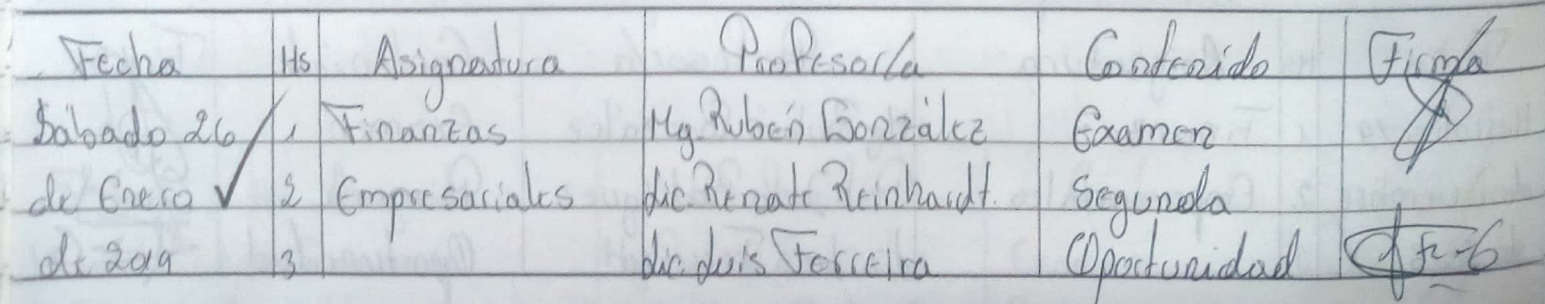 Fecha Hs Asignatura Profesor/a Contenido Firma
Sábado 26 1 Finanzas Mg. Rubén González Examen
de Enero 2 Empresariales Lic. Renate Reinhardt. Segunda
de 2019 3 Lic. Luis Ferreira Oportunidad